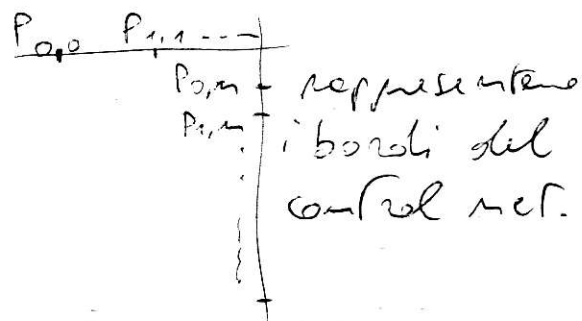 P0,0 P1,1 ---
P0,n rappresentano
P1,n i bordi del
control net.